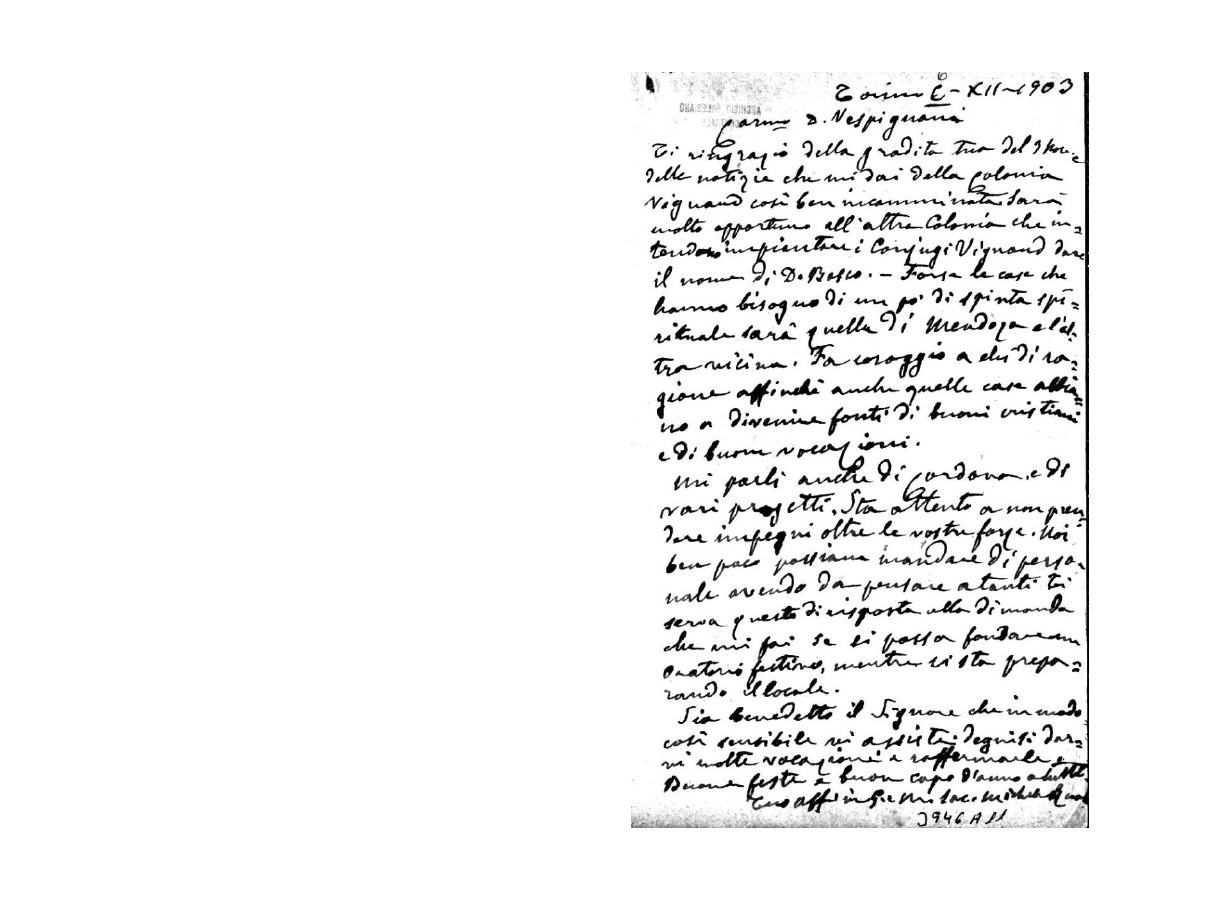 Torino 6-XII-1903
ARCHIVIO SALESIANO
CENTRALE
Carmo D. Vespignani
Ti ringrazio della gradita tua del 9 Nov. e
delle notizie che mi dai della colonia
Vignaud così ben incamminata. Sarà
molto opportuno all'altra Colonia che in=
tendono impiantare i Conjugi Vignaud dare
il nome di D. Bosco. — Forse le case che
hanno bisogno di un po' di spinta spi=
rituale sarà quella di Mendoza e l'al-
tra vicina. Fa coraggio a chi di ra=
gione affinchè anche quelle case abbia=
no a divenire fonti di buoni cristiani
e di buone vocazioni.
Mi parli anche di Cordova e di
vari progetti. Sta attento a non pren=
dere impegni oltre le vostre forze. Noi
ben poco possiamo mandare di perso-
nale avendo da pensare a tanti. Ti
serva questo di risposta alla dimanda
che mi fai se si possa fondare un
Oratorio festivo, mentre si sta prepa=
rando il locale.
Sia benedetto il Signore che in modo
così sensibile vi assiste; degnisi dar=
vi molte vocazioni e raffermarle e
Buone feste e buon capo d'anno a tutti.
Tuo aff in G. e M. Sac. Michele Rua
3946 A 11